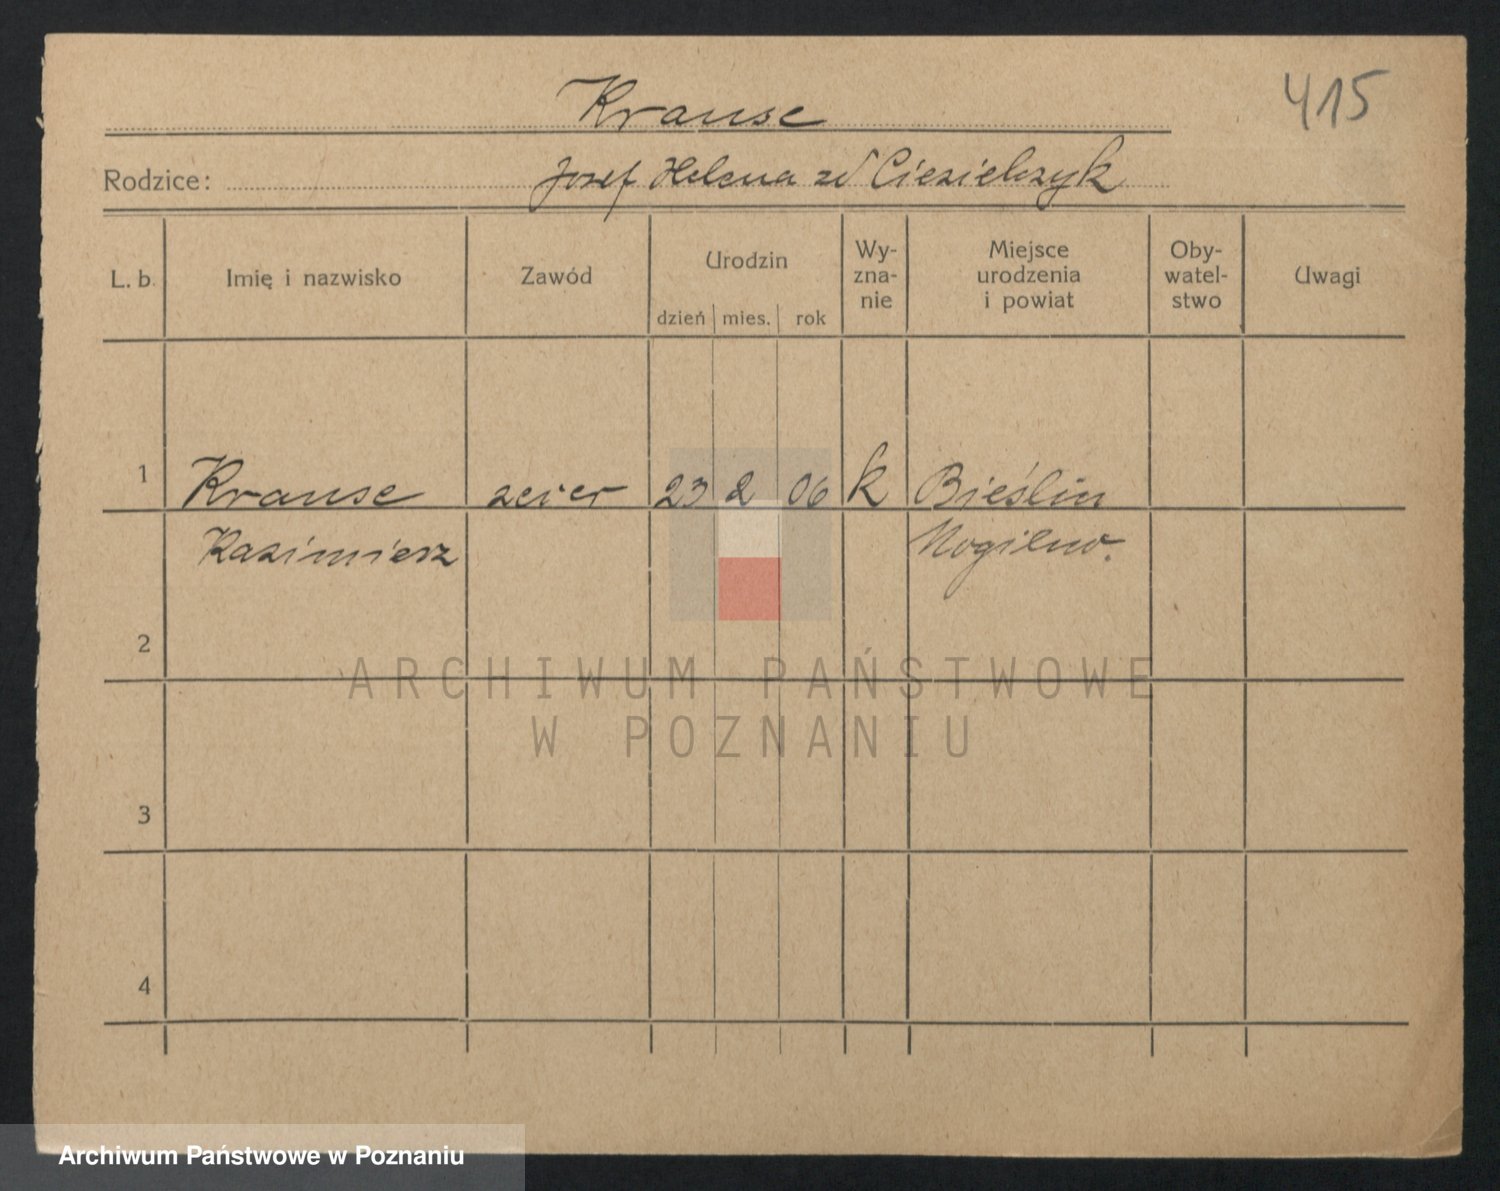 Krause
415
Rodzice: Josef Helena zd Ciesielczyk
L. b. Imię i nazwisko Zawód Urodzin dzień mies. rok Wy-zna-nie Miejsce urodzenia i powiat Oby-watel-stwo Uwagi
1 Krause 23 2 06 k Bieślin
Kazimierz Mogilno.
2
ARCHIWUM PAŃSTWOWE
W POZNANIU
3
4
Archiwum Państwowe w Poznaniu